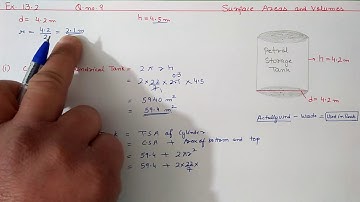 Ex 13.2 Q no. 9 Surface Areas and Volumes
d = 4.2 m h = 4.5 m
r = 4.2/2 = 2.1 m
(i) Tank = 2 π r h
= 2 × 22/7 × 2.1 × 4.5
0.3
= 5940 m²
= 59.4 m²
= TSA of Cylinder
= CSA + Area of bottom and top
= 59.4 + 2πr²
= 59.4 + 2 × 22/7 ×
Petrol
Storage
Tank
h = 4.2 m
d = 4.2 m
Actually used - Waste = Used in tank